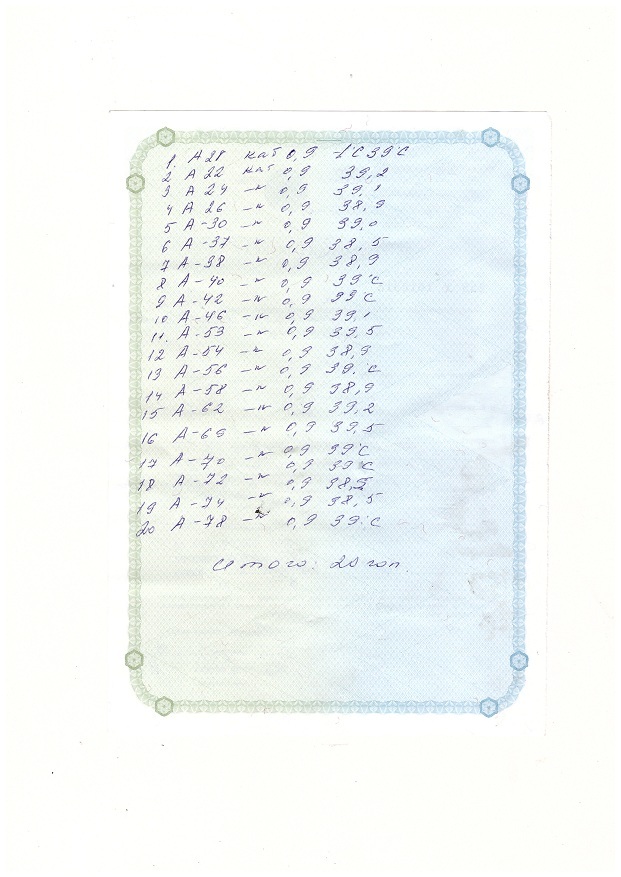 1. А 28 каб 0,9 t°С 39°С
2 А 22 каб 0,9 39,2
3 А 24 -"- 0,9 39,1
4 А 26 -"- 0,9 38,9
5 А-30 -"- 0,9 39,0
6 А-37 -"- 0,9 38,5
7 А-38 -"- 0,9 38,9
8 А-40 -"- 0,9 39°С
9 А-42 -"- 0,9 39°С
10 А-46 -"- 0,9 39,1
11. А-53 -"- 0,9 39,5
12 А-54 -"- 0,9 38,9
13 А-56 -"- 0,9 39°С
14 А-58 -"- 0,9 38,9
15 А-62 -"- 0,9 39,2
16 А-69 -"- 0,9 39,5
17 А-70 -"- 0,9 39°С
18 А-72 -"- 0,9 39°С
0,9
19 А-74 -"- 0,9 38,5
20 А-78 -"- 0,9 39°С
Итого: 20 гол.